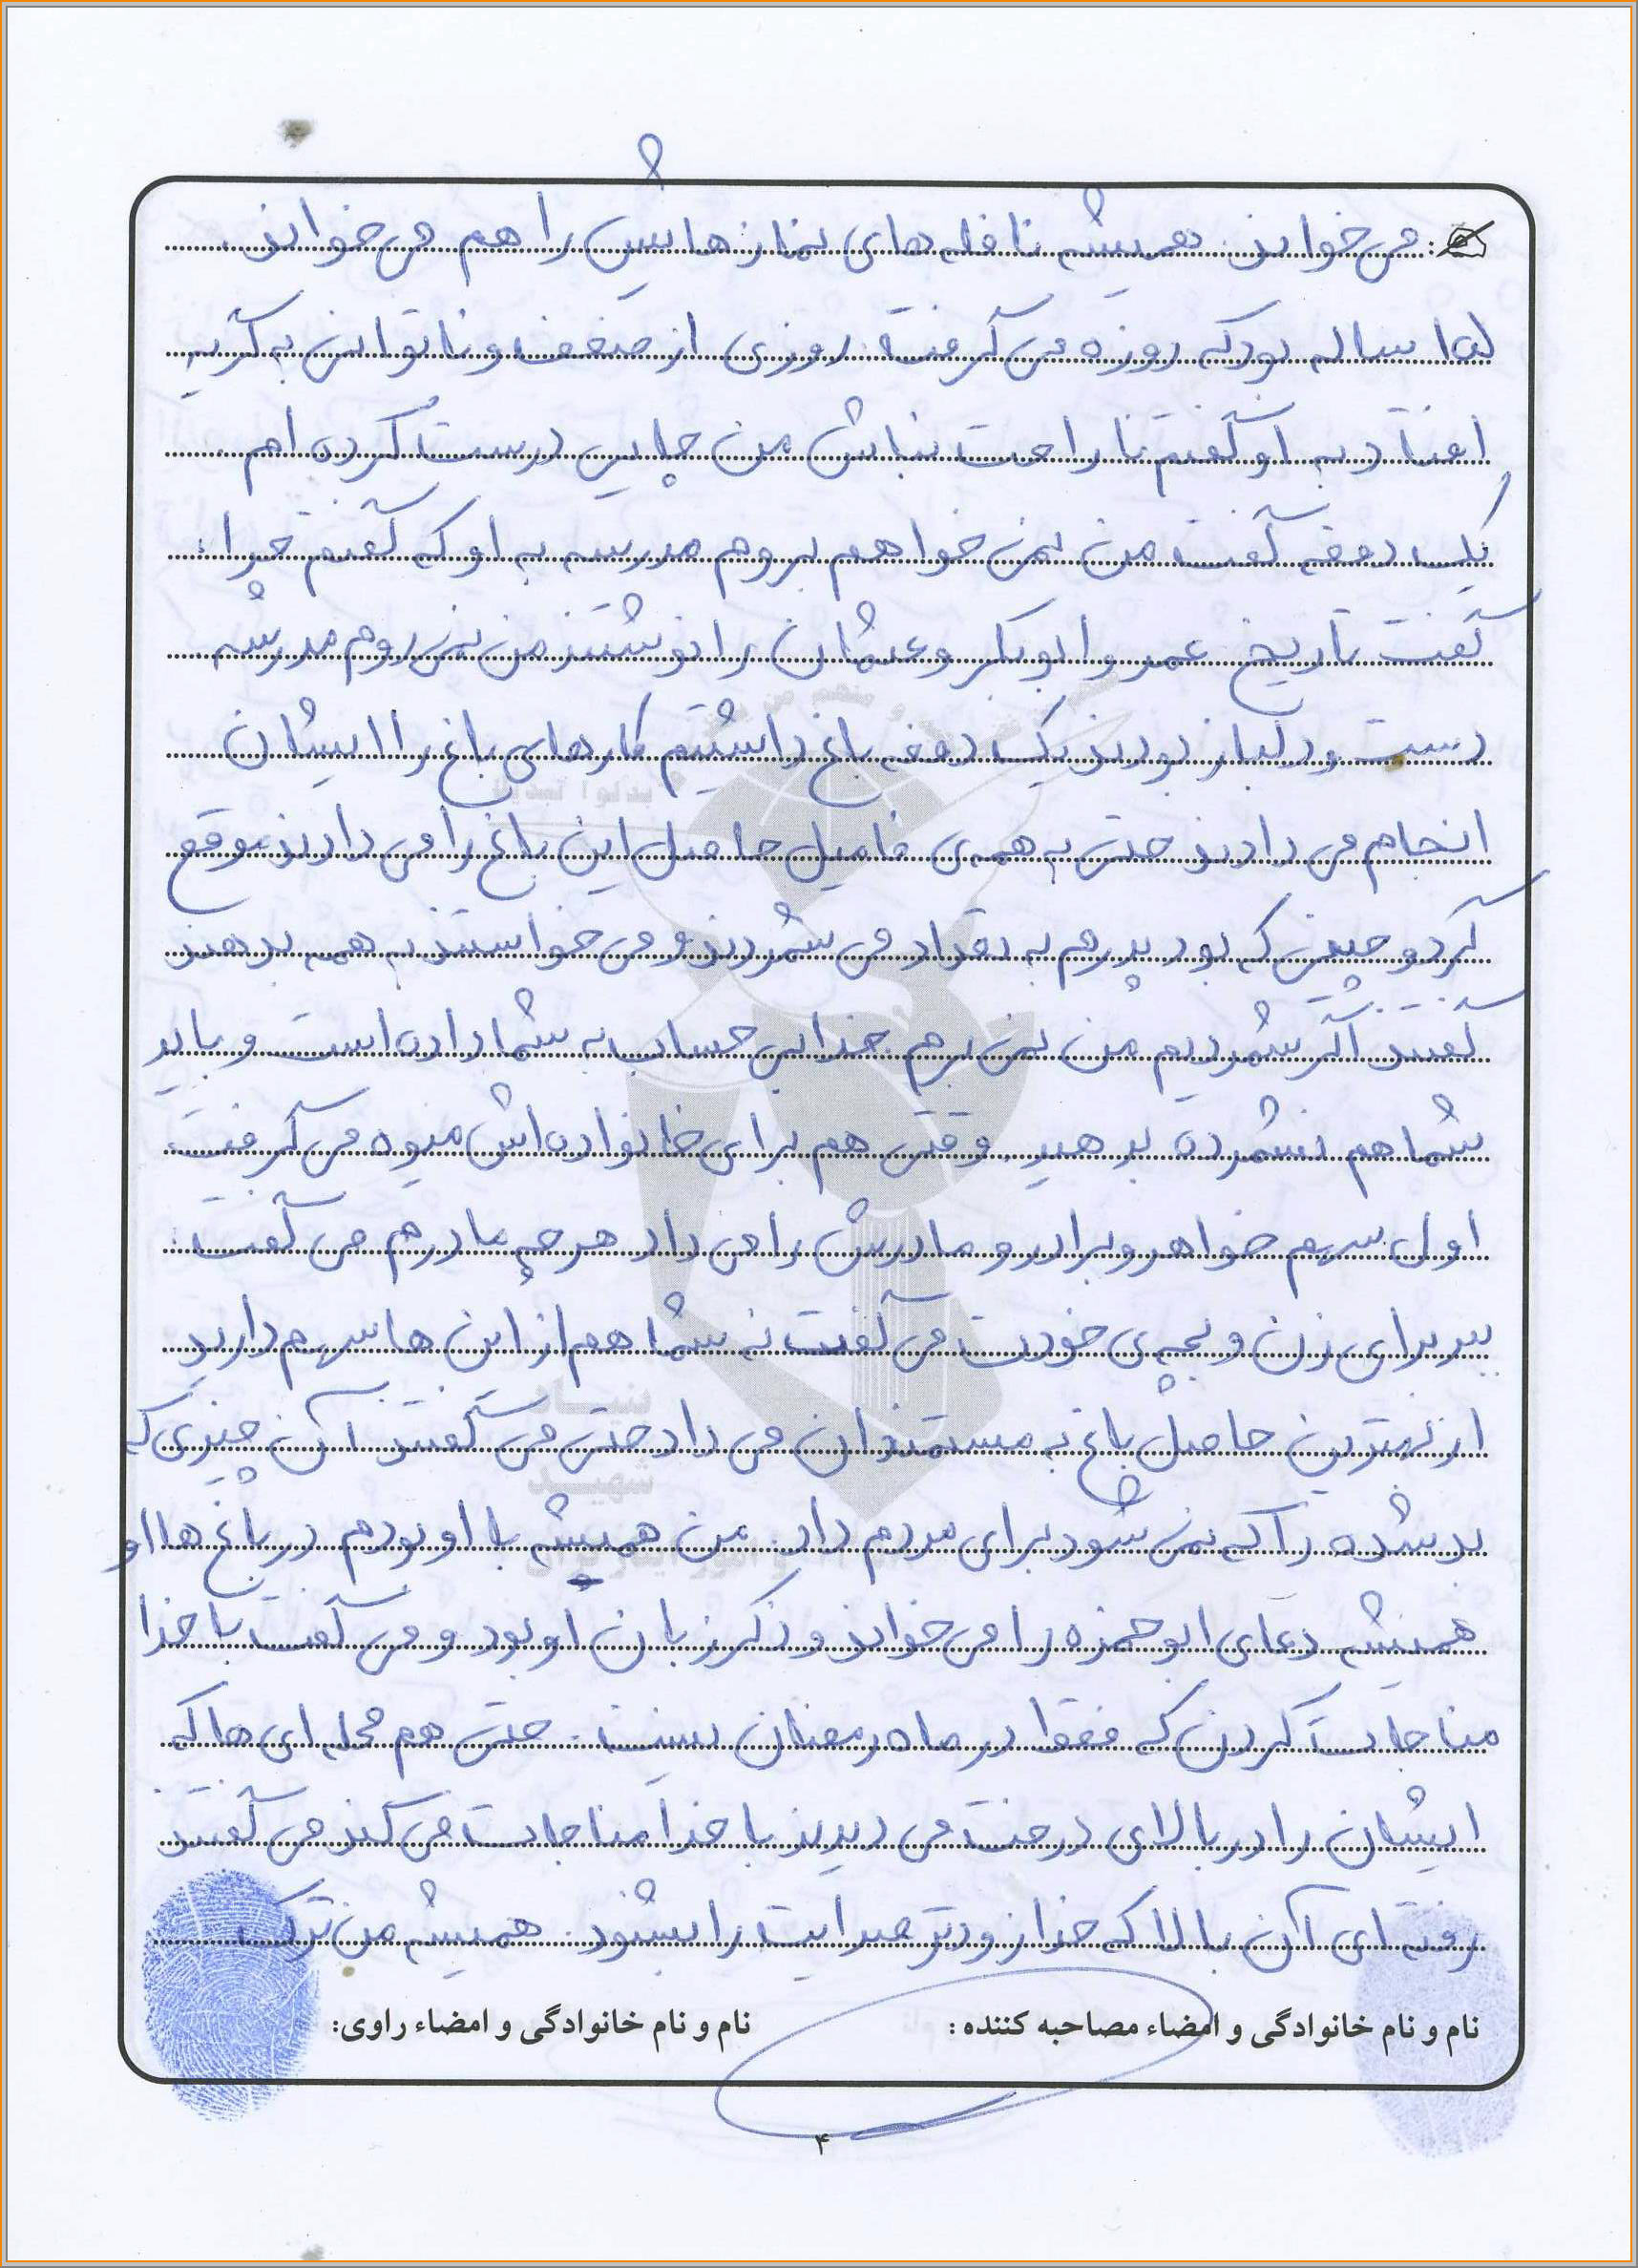 می خواند. همیشه نافله های نمازهایش را هم می خواند.
۱۵ ساله بود که روزه می گرفت. روزی از ضعف و ناتوانی به گریه
افتاد به او گفتم ناراحت نباش من چایی درست کرده ام.
یک دفعه گفت من نمی خواهم بروم مدرسه به او که گفتم چرا؟
گفت تاریخ عمر و ابوبکر و عثمان را نوشتند من نمی روم مدرسه
دست و دلباز بودند یک دفعه باغ داشتیم کارهای باغ را ایشان
انجام می دادند حتی به همه ی فامیل حاصل این باغ را می دادند موقع
گردو چینی که بود پدرم به تعداد می شمردند و می خواستند به همه بدهند
گفتند اگر شمردیم من نمی برم خدا بی حساب به شما داده است و باید
شما هم نشمرده بدهید. وقتی هم برای خانواده اش میوه می گرفت
اول سهم خواهر و برادر و مادرش را می داد هر چه مادرم می گفت:
ببر برای زن و بچه ی خودت می گفت نه شما هم از این ها سهم دارید
از بهترین حاصل باغ به مستمندان می داد حتی می گفتند آن چیزی که
بد شده را که نمی شود برای مردم داد. من همیشه با او بودم در باغ ها او
همیشه دعای ابوحمزه را می خواند و ذکر زبان او بود و می گفت با خدا
مناجات کردن که فقط در ماه رمضان نیست. حتی هم محله ای ها که
ایشان را در بالای درخت می دیدند با خدا مناجات می کند می گفتند
رفته ای آن بالا که خدا زودتر صدایت را بشنود. همیشه من ترک
نام و نام خانوادگی و امضاء مصاحبه کننده: نام و نام خانوادگی و امضاء راوی:
۴